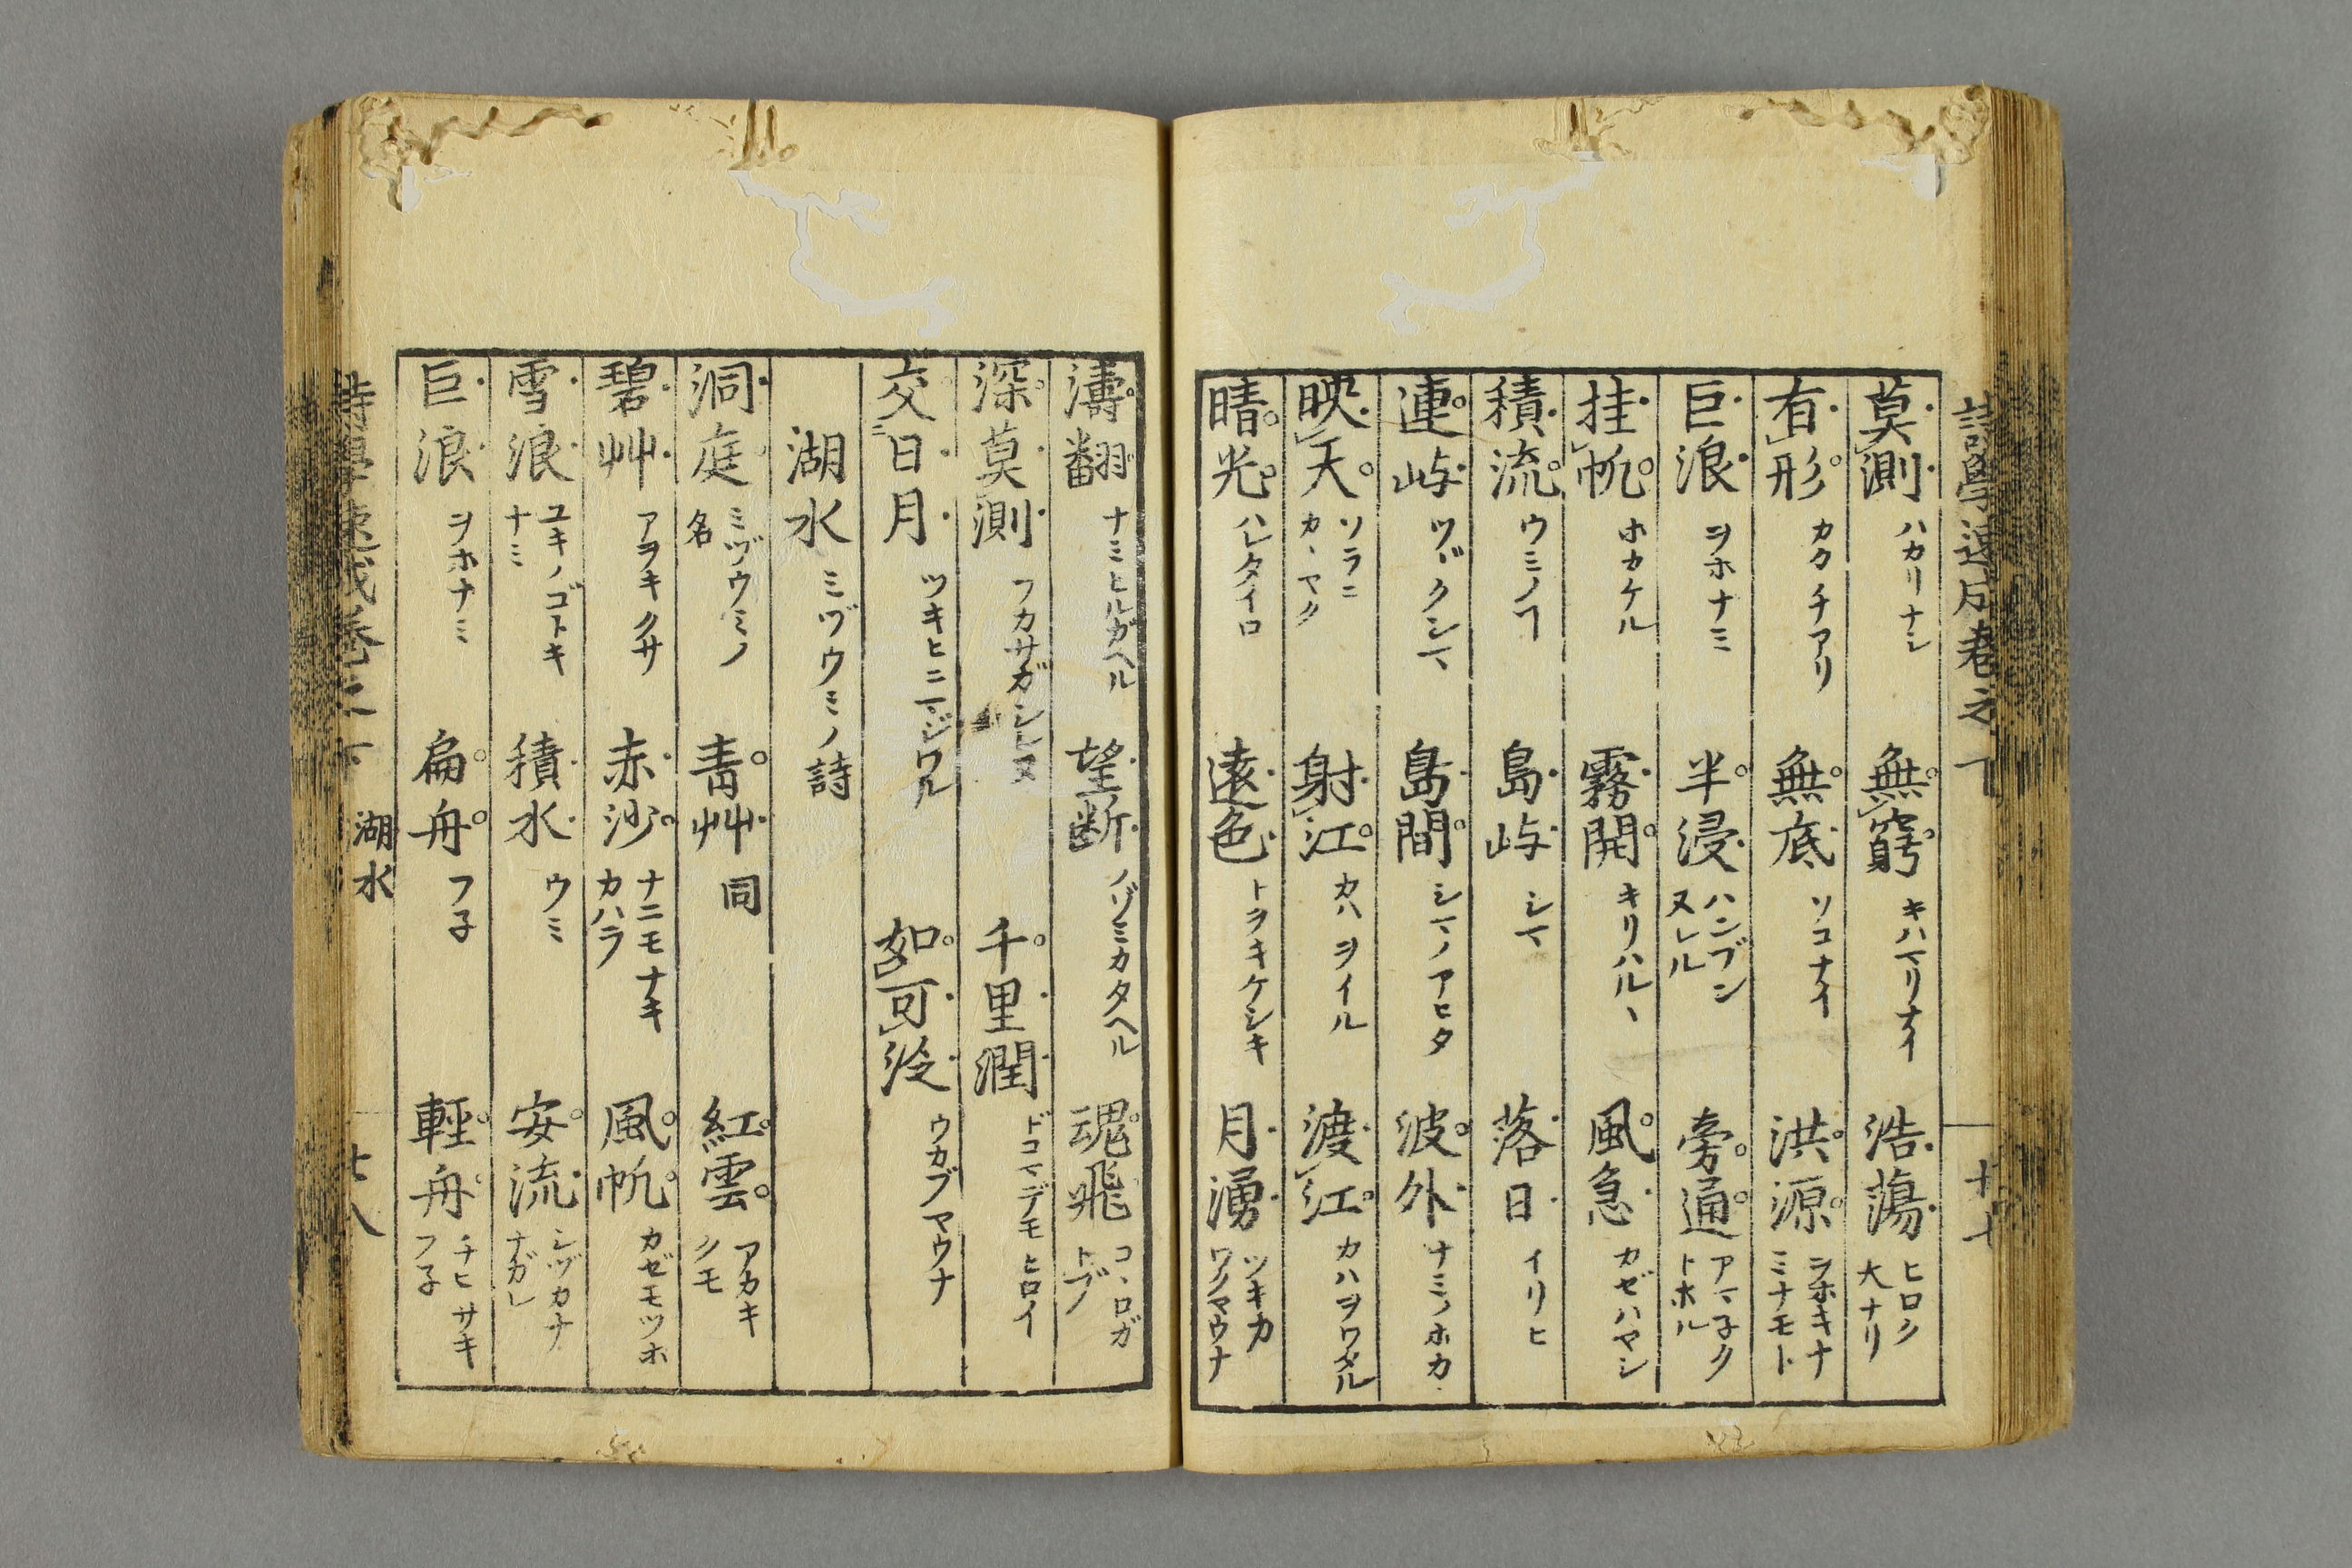 詩學速成卷之下 十七
莫測 ハカリナシ 無窮 キハマリナイ 浩蕩 ヒロク大ナリ
有形 カタチアリ 無底 ソコナイ 洪源 ヲホキナミナモト
巨浪 ヲホナミ 半浸 ハンブンヌレル 旁通 アマ子クトホル
挂帆 ホカケル 霧開 キリハルヽ 風急 カゼハヤシ
積流 ウミノヿ 島屿 シマ 落日 イリヒ
連屿 ツヾクシマ 島間 シマノアヒタ 波外 ナミノホカ
映天 ソラニカヽヤク 射江 カハヲイル 渡江 カハヲワタル
晴光 ハレタイロ 遠色 トヲキケシキ 月湧 ツキカワクマウナ
濤翻 ナミヒルガヘル 望断 ノゾミカタヘル 魂飛 コヽロガトブ
深莫測 フカサガシレヌ 千里潤 ドコマデモヒロイ
交日月 ツキヒニマジワル 如可泛 ウカブマウナ
湖水 ミヅウミノ詩
洞庭 ミヅウミノ名 青艸 同 紅雲 アカキクモ
碧艸 アヲキクサ 赤沙 ナニモナキカハラ 風帆 カゼモツホ
雪浪 ユキノゴトキナミ 積水 ウミ 安流 シヅカナナガレ
巨浪 ヲホナミ 扁舟 フ子 輕舟 チヒサキフ子
詩學速成卷之下 湖水 十八